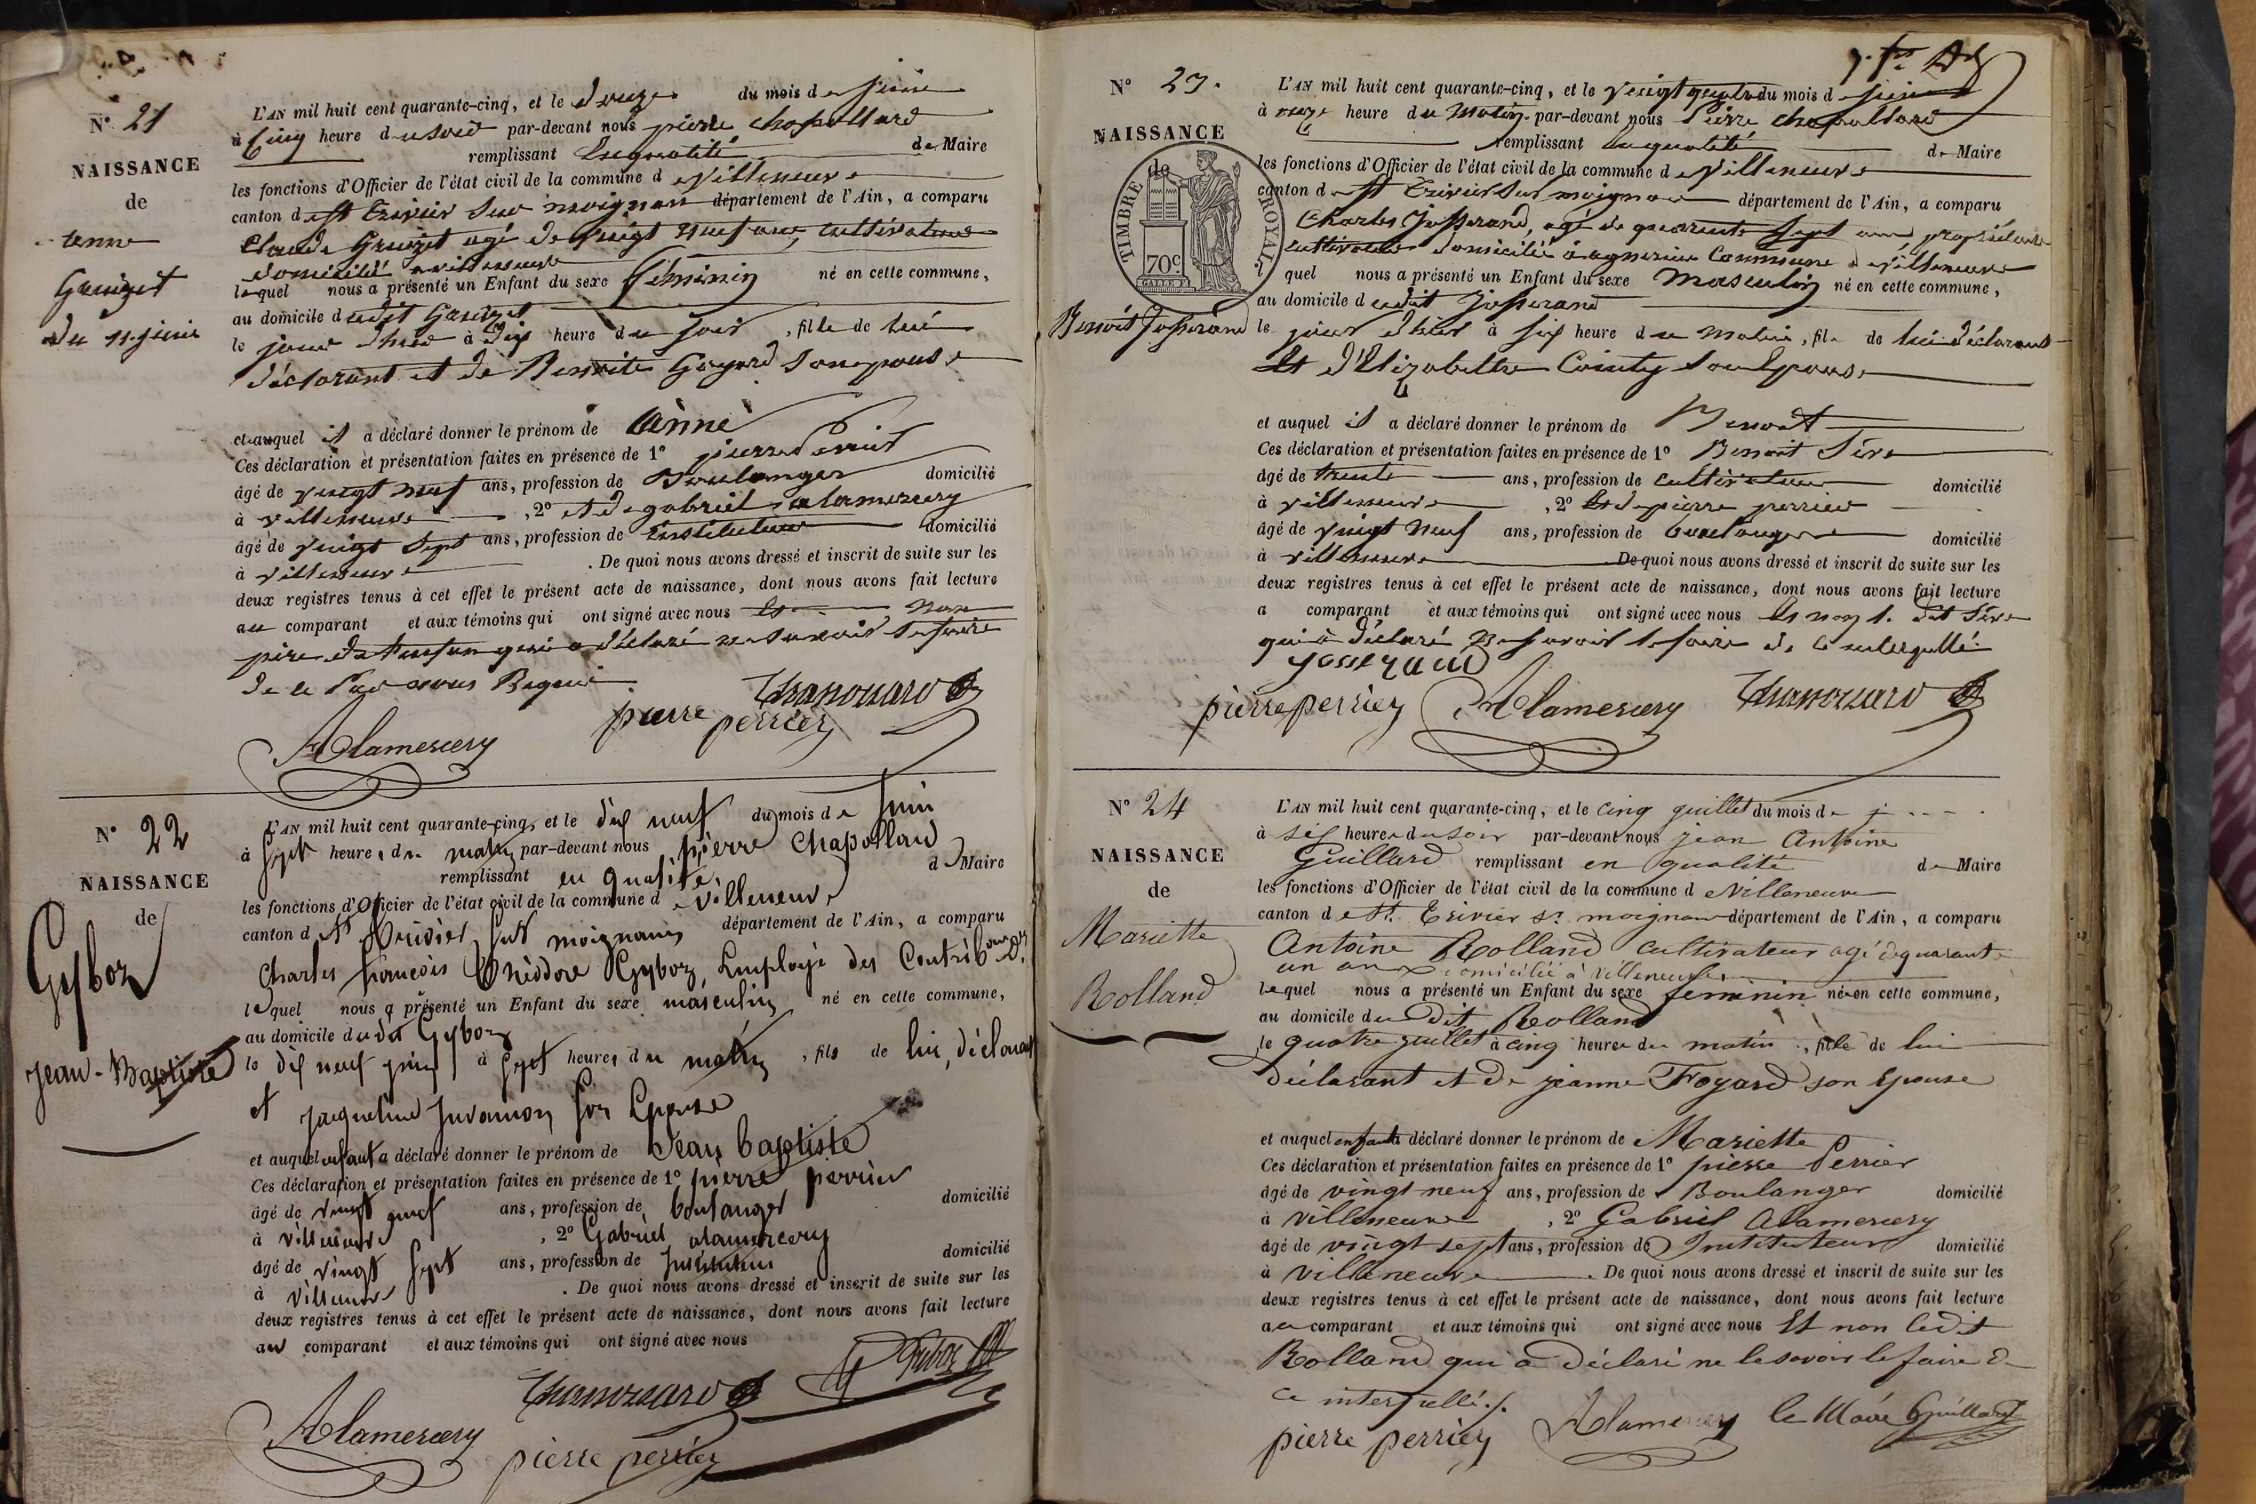 N° 21
NAISSANCE
de
Gauizet
du 11 juin
L'AN mil huit cent quarante-cinq, et le douze du mois de juin
à Cinq heure du soir par-devant nous pierre chapollard
remplissant en qualité de Maire
les fonctions d'Officier de l'état civil de la commune de villeneuve
canton de st trivier sur moignan département de l'Ain, a comparu
Claude agé de vingt neuf ans, cultivateur
domicilié a villeneuve
lequel nous a présenté un Enfant du sexe féminin né en cette commune,
au domicile dudit
le jour d'hier à dix heure du soir, fille de lui
déclarant et de Benoite Goyard son epouse
et auquel il a déclaré donner le prénom de anne
Ces déclaration et présentation faites en présence de 1° pierre Perrier
âgé de vingt neuf ans, profession de Boulanger domicilié
à villeneuve, 2° et de gabriel alamercery
âgé de vingt sept ans, profession de instituteur domicilié
à villeneuve. De quoi nous avons dressé et inscrit de suite sur les
deux registres tenus à cet effet le présent acte de naissance, dont nous avons fait lecture
au comparant et aux témoins qui ont signé avec nous et non
père de l'enfant qui a déclaré ne savoir le faire
de ce
Chapollard
pierre perrier
Alamercery
N° 22
NAISSANCE
de
Gyboz
Jean-Baptiste
L'AN mil huit cent quarante-cinq, et le dix neuf du mois de juin
à sept heures du matin par-devant nous pierre Chapollard
remplissant en qualité de Maire
les fonctions d'Officier de l'état civil de la commune de villeneuve
canton de st trivier sur moignan département de l'Ain, a comparu
Charles françois théodore Gyboz, Employé des Contrib
lequel nous a présenté un Enfant du sexe masculin né en cette commune,
au domicile dudit Gyboz
le dix neuf juin à sept heures du matin, fils de lui, déclarant
et jacqueline son Epouse
et auquel enfant a déclaré donner le prénom de Jean baptiste
Ces déclaration et présentation faites en présence de 1° pierre perrier
âgé de vingt neuf ans, profession de boulanger domicilié
à villeneuve, 2° Gabriel alamercery
âgé de vingt sept ans, profession de Instituteur domicilié
à villeneuve. De quoi nous avons dressé et inscrit de suite sur les
deux registres tenus à cet effet le présent acte de naissance, dont nous avons fait lecture
au comparant et aux témoins qui ont signé avec nous
Gyboz
Chapollard
Alamercery
pierre perrier
N° 23.
NAISSANCE
de
TIMBRE ROYAL
70c
Benoit Josserand
L'AN mil huit cent quarante-cinq, et le vingt quatre du mois de juin
à onze heure du matin par-devant nous Pierre chapollard
remplissant en qualité de Maire
les fonctions d'Officier de l'état civil de la commune de villeneuve
canton de st trivier sur moignan département de l'Ain, a comparu
Charles Josserand, agé de quarante sept ans propriétaire
cultivateur domicilié à agnerin Commune de villeneuve
quel nous a présenté un Enfant du sexe masculin né en cette commune,
au domicile dudit Josserand
le jour d'hier à six heure du matin, fils de lui déclarant
et d'Elizabeth Cointy son Epouse
et auquel il a déclaré donner le prénom de Benoit
Ces déclaration et présentation faites en présence de 1° Benoit Sève
âgé de trente ans, profession de cultivateur domicilié
à villeneuve, 2° et de pierre perrier
âgé de vingt neuf ans, profession de boulanger domicilié
à villeneuve. De quoi nous avons dressé et inscrit de suite sur les
deux registres tenus à cet effet le présent acte de naissance, dont nous avons fait lecture
a comparant et aux témoins qui ont signé avec nous et non l. dit Sève
qui a déclaré ne savoir le faire de ce interpellé.
josserand
pierre perrier Alamercery Chapollard
N° 24
NAISSANCE
de
Mariette
Rolland
L'AN mil huit cent quarante-cinq, et le cinq juillet du mois de j
à six heures du soir par-devant nous jean Antoine
Guillard remplissant en qualité de Maire
les fonctions d'Officier de l'état civil de la commune de villeneuve
canton de St. Trivier sr moignans département de l'Ain, a comparu
Antoine Rolland cultivateur agé de quarante
un ans domicilié à villeneuve
lequel nous a présenté un Enfant du sexe feminin née en cette commune,
au domicile du dit Rolland
le quatre juillet à cinq heures du matin, fille de lui
déclarant et de jeanne Foyard son Epouse
et auquel enfant a déclaré donner le prénom de Mariette
Ces déclaration et présentation faites en présence de 1° pierre Perrier
âgé de vingt neuf ans, profession de Boulanger domicilié
à villeneuve, 2° Gabriel Alamercery
âgé de vingt sept ans, profession de Instituteur domicilié
à villeneuve. De quoi nous avons dressé et inscrit de suite sur les
deux registres tenus à cet effet le présent acte de naissance, dont nous avons fait lecture
au comparant et aux témoins qui ont signé avec nous Et non ledit
Rolland qui a déclaré ne le savoir le faire de
ce interpellé./.
pierre perrier Alamercery le Maire Guillard